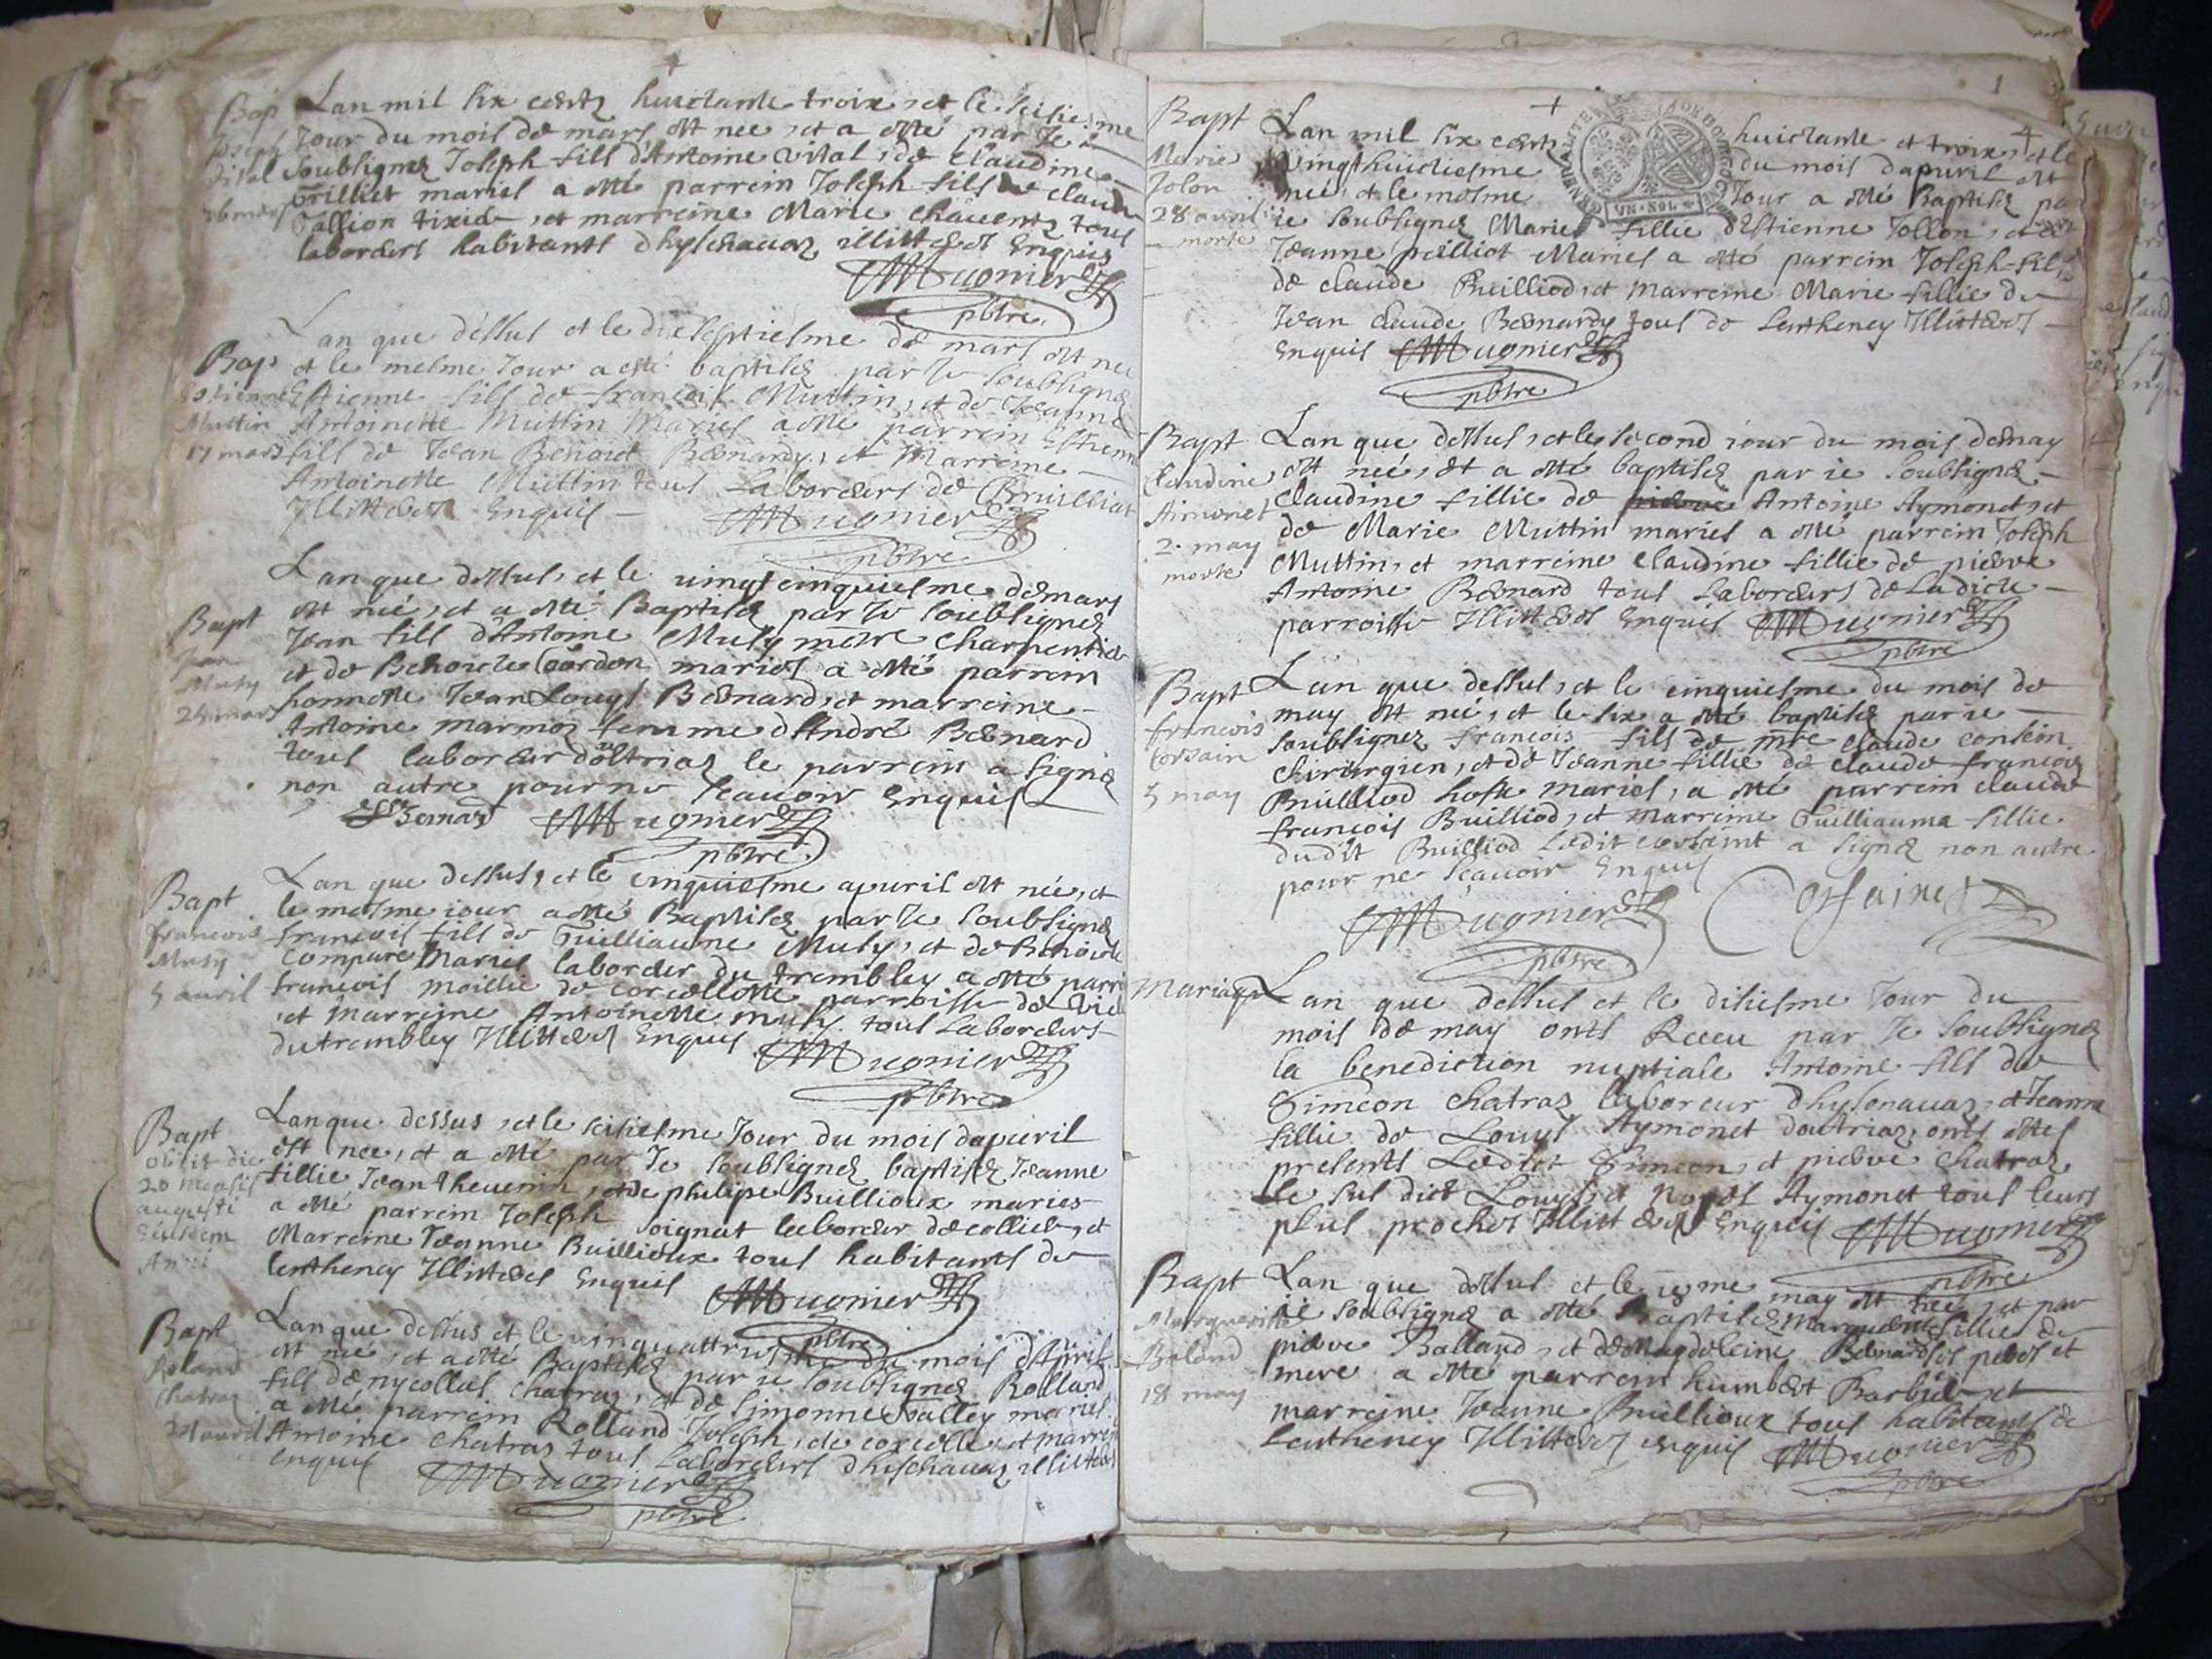 Bap
Joseph
Vital
16 mars
Lan mil six centz huictante troix, et le seisieme
Jour du mois de mars est nee, et a esté par Je
soubsignez Joseph fils d'Antoine Vital, de Claudine
Trilliet mariés a esté parrein Joseph fils de Claude
Jallion tixier, et marreine Marie Chaventz tous
laborders habitants d'hyschavaz illitterés Enquis
Mugnier
pbtre
Bap
Estienne
Muttin
17 mars
Lan que dessus et le dixseptiesme de mars est né
et le mesme Jour a esté baptisez par Je soubsignez
Estienne fils de françois Muttin, et de Jeanne
Antoinette Muttin Mariés a esté parrein Estienne
fils de Jean Benoict Bernardz, et Marreine
Antoinette Muttin tous Laborders de Bruilliat
Illitterés Enquis
Mugnier
pbtre
Bapt
Jean
Muty
25 mars
Lan que dessus, et le vingt cinquiesme de mars
est né, et a esté Baptisez par Je soubsignez
Jean fils d'Antoine Muty mestre Charpentier
et de Benoicte Gordon mariés a esté parrein
honneste Jean Louys Bernard, et marreine
Antoine marmoz femme d'André Bernard
tous laboreur d'oltriaz le parrein a signé
non autre pour ne scavoir Enquis
Bernard Mugnier
pbtre
Bapt
françois
Muty
5 avril
Lan que dessus, et le cinquiesme apvril est née, et
le mesme jour a esté Baptisez par Je soubsignez
françois fils de Guilliaume Muty, et de Benoicte
Compare Mariés laborder du tremblex a esté parrein
françois moillie de corcellette parroisse de
et Marreine Antoinette muty tous Laborders
du tremblex Illitterés Enquis Mugnier
pbtre
Bapt
obiit die
20 mensis
augusti
Eiusdem
Anni
Lan que dessus, et le seisiesme Jour du mois dapvril
est nee, et a esté par Je soubsignez baptisez Jeanne
fillie Jean thevenin, et de philipe Buillioux mariés
a esté parrein Joseph soignat laborder de collier, et
Marreine Jeanne Buillioux tous habitants de
Lentheney Illitterés Enquis Mugnier
pbtre
Bapt
Roland
Chatraz
24 avril
Lan que dessus et le vinquattriesme du mois d'Apvril
est né, et a esté Baptisez par je soubsignez Rolland
fils de nycollas Chatraz, et de Simonne Valley mariés
a esté parrein Rolland Joseph, de corcelle, et marreine
Antoine Chatraz tous Laborders d'hyschavaz illitterés
Enquis Mugnier
pbtre
1
Bapt
Marie
Jolon
28 avril
morte
Lan mil six centz huictante et troix, et le
vingthuictiesme du mois dapvril est
née, et le mesme Jour a esté Baptisez par
je soubsignez Marie fillie d'Estienne Jollon, et de
Jeanne peilliot Mariés a esté parrein Joseph fils
de claude Builliod, et Marreine Marie fillie de
Jean Claude Bernardz tous de Lentheney Illitterés
Enquis Mugnier
pbtre
Bapt
Claudine
Aimonet
2 may
morte
Lan que dessus, et le second jour du mois de may
est neé, et a esté baptisez par je soubsignez
Claudine fillie de Antoine Aymonet, et
de Marie Muttin mariés a esté parrein Joseph
Muttin, et marreine claudine fillie de pierre
Antoine Bernard tous Laborders de Ladicte
parroisse Illitterés Enquis Mugnier
pbtre
Bapt
françois
Corsain
5 may
Lan que dessus, et le cinquiesme du mois de
may est né, et le six a esté baptisez par je
soubsignez françois fils de mre claude corsein
chirurgien, et de Jeanne fillie de claude françois
Builliod hoste mariés, a esté parrein claude
françois Builliod, et Marreine Guilliauma fillie
dudit Builliod Ledit corsaint a signé non autre
pour ne sçavoir Enquis
Mugnier Corsaint
pbtre
Mariage
Lan que dessus et le disiesme Jour du
mois de may onts Receu par Je soubsignez
la benediction nuptiale Antoine fils de
Simeon Chatraz laboreur d'hysenavaz, et Jeanne
fillie de Louys Aymonet doutriaz, onts estes
presents Ledict Simeon, et pierre Chatraz
Le sus dict Louys, et Noyel Aymonet tous leurs
plus proches Illitterés Enquis Mugnier
pbtre
Bapt
Marguerite
Baland
18 may
Lan que dessus et le may est neé, et par
je soubsignez a esté Baptisez Marguerite fillie de
pierre Balland, et de Magdeleine Bernard ses peres et
mere a esté parrein humbert Barbier, et
marreine Jeanne Buillioux tous habitants de
Lentheney Illitterés enquis Mugnier
pbtre